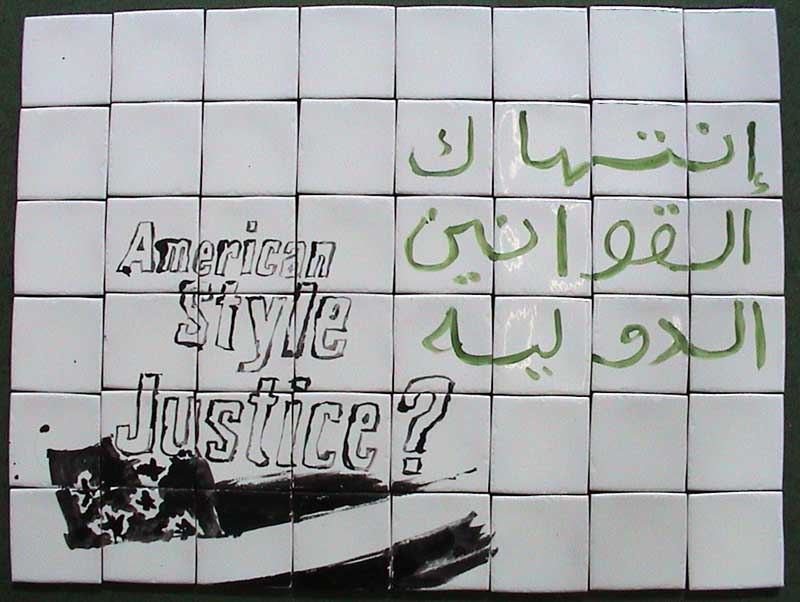 إنتهاك
القوانين
الدوليه
American
Style
Justice?